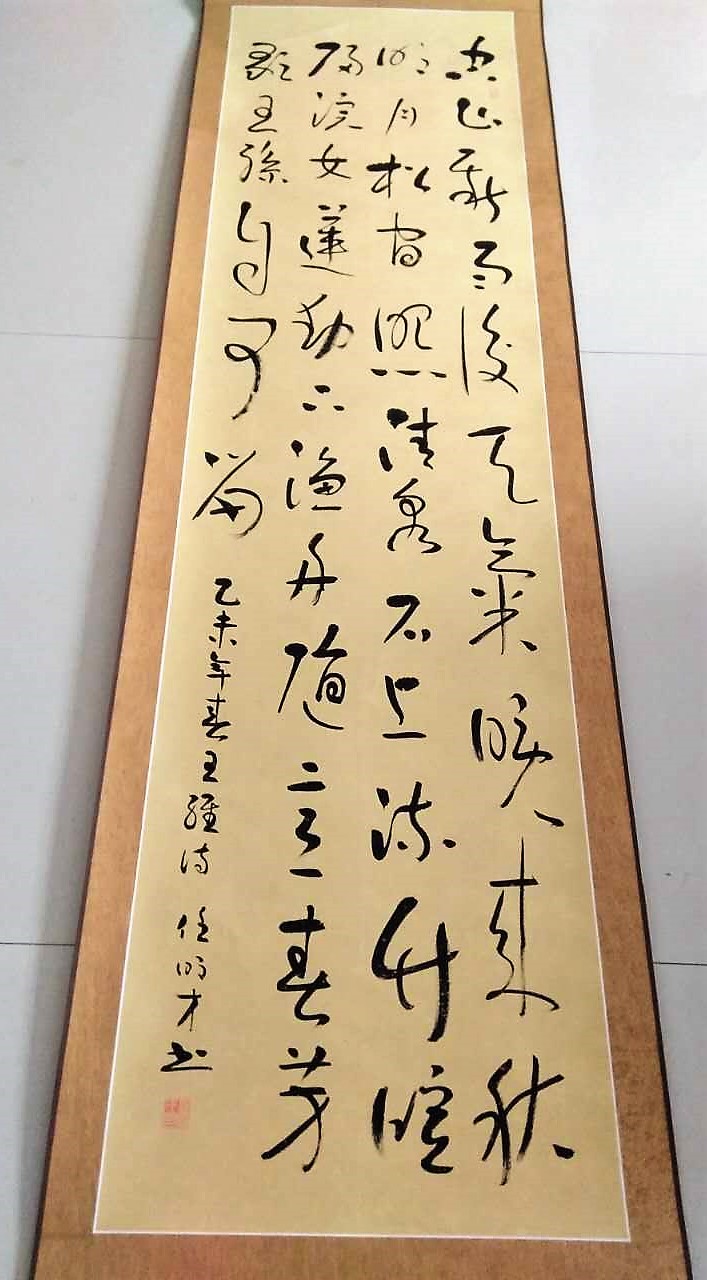 空山新雨後天氣晚來秋
明月松间照清泉石上流竹喧
歸浣女蓮動下漁舟隨意春芳
歇王孫自可留
乙未年春王維詩 任明才书